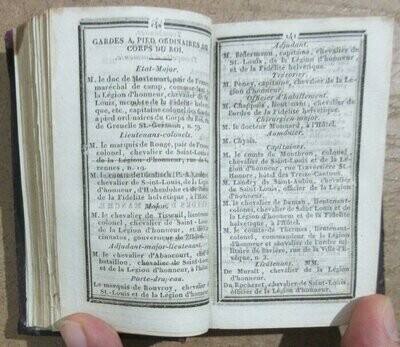 GARDES A PIED ORDINAIRES DU
CORPS DU ROI.
Etat-Major.
M. le duc de Mortemart, pair de France
maréchal de camp, comm
Légion d'honneur, chevalier de
Louis, membre de la fidélité
que, etc., capitaine colonel des Gardes
à pied ordinaires du Corps du Roi,
de Grenelle St.-Germain, n. 79.
Lieutenans-colonels.
M. le marquis de Rougé, pair de France
colonel, chevalier de Saint-Louis
la Légion d'honneur, rue de
nes, n. 19.
M. le
chevalier de Saint-Louis, de la Légion
d'honneur, d'Hohenlohe et de
la Fidélité helvétique
Major
M. le chevalier de lieutenant
colonel, chevalier de Saint-Louis
de la Légion d'honneur, et de
gouverneur
Adjudant-major-lieutenant.
M. le chevalier d'Abancourt, chef
bataillon, chevalier de Saint-Louis
la Légion d'honneur, à l'hôtel
Porte-drapeau.
Le marquis de Rouvroy, chevalier
St.-Louis et de la Légion d'honneur.
241
Adjudant.
M. capitaine, chevalier de
St. Louis, de la Légion d'honneur
et de la Fidélité helvétique.
Trésorier.
M. Peney, capitaine, chevalier de la Lé-
gion d'honneur.
Officier d'habillement.
M. Chappuis, lieutenant, chevalier de
l'ordre de la Fidélité helvétique.
Chirurgien-major.
M. le docteur Monnard, à l'Hôtel.
Aumônier.
M.
Capitaines.
M. le comte de Montbron, colonel,
chevalier de Saint-Louis et de la Légion
d'honneur, rue Traversière St.-
Honoré, hôtel des Treize-Cantons.
M. Landry de Saint-Aubin, chevalier de
Saint-Louis, officier de la Légion
d'honneur.
M. le chevalier de Daman, lieutenant-
colonel, chevalier de Saint-Louis et de
la Légion d'honneur et de la Fidélité
helvétique, à l'Hôtel.
M. le comte de Thermes, lieutenant-
colonel, commandeur de la Légion
d'honneur et chevalier de l'ordre mi-
litaire de Bavière, rue de la Ville-l'Evê-
que, n. 3.
Lieutenans. MM.
De Muralt, chevalier de la Légion
d'honneur.
Du Rocheret, chevalier de Saint-Louis,
officier de la Légion d'honneur.